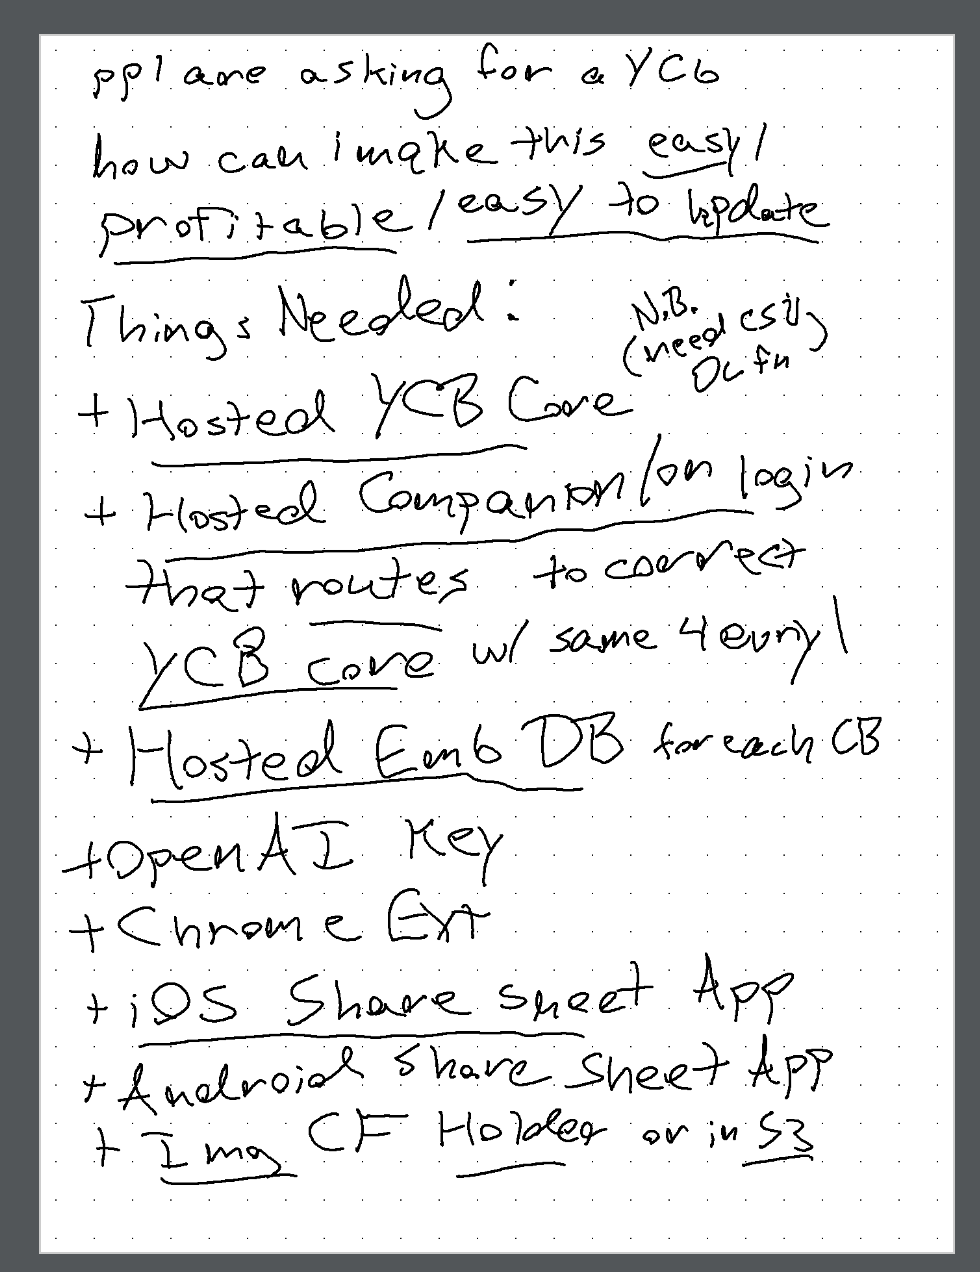 ppl are asking for a YCb
how can i make this easy/
profitable/easy to update
Things Needed:
N.B.
(need csv)
DL fn
+ Hosted YCB Core
+ Hosted Companion/on login
that routes to correct
YCB core w/ same 4 evry 1
+ Hosted Emb DB for each CB
+ OpenAI Key
+ Chrome Ext
+ iOS Share sheet App
+ Android Share Sheet App
+ Img CF Holder or in S3